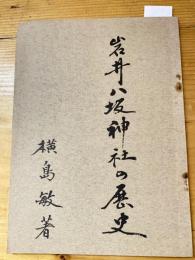 岩井八坂神社の歴史
横島敏著